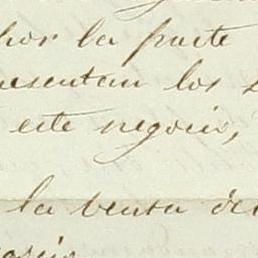 por la parte
resentan los
este negocio,
la venta de